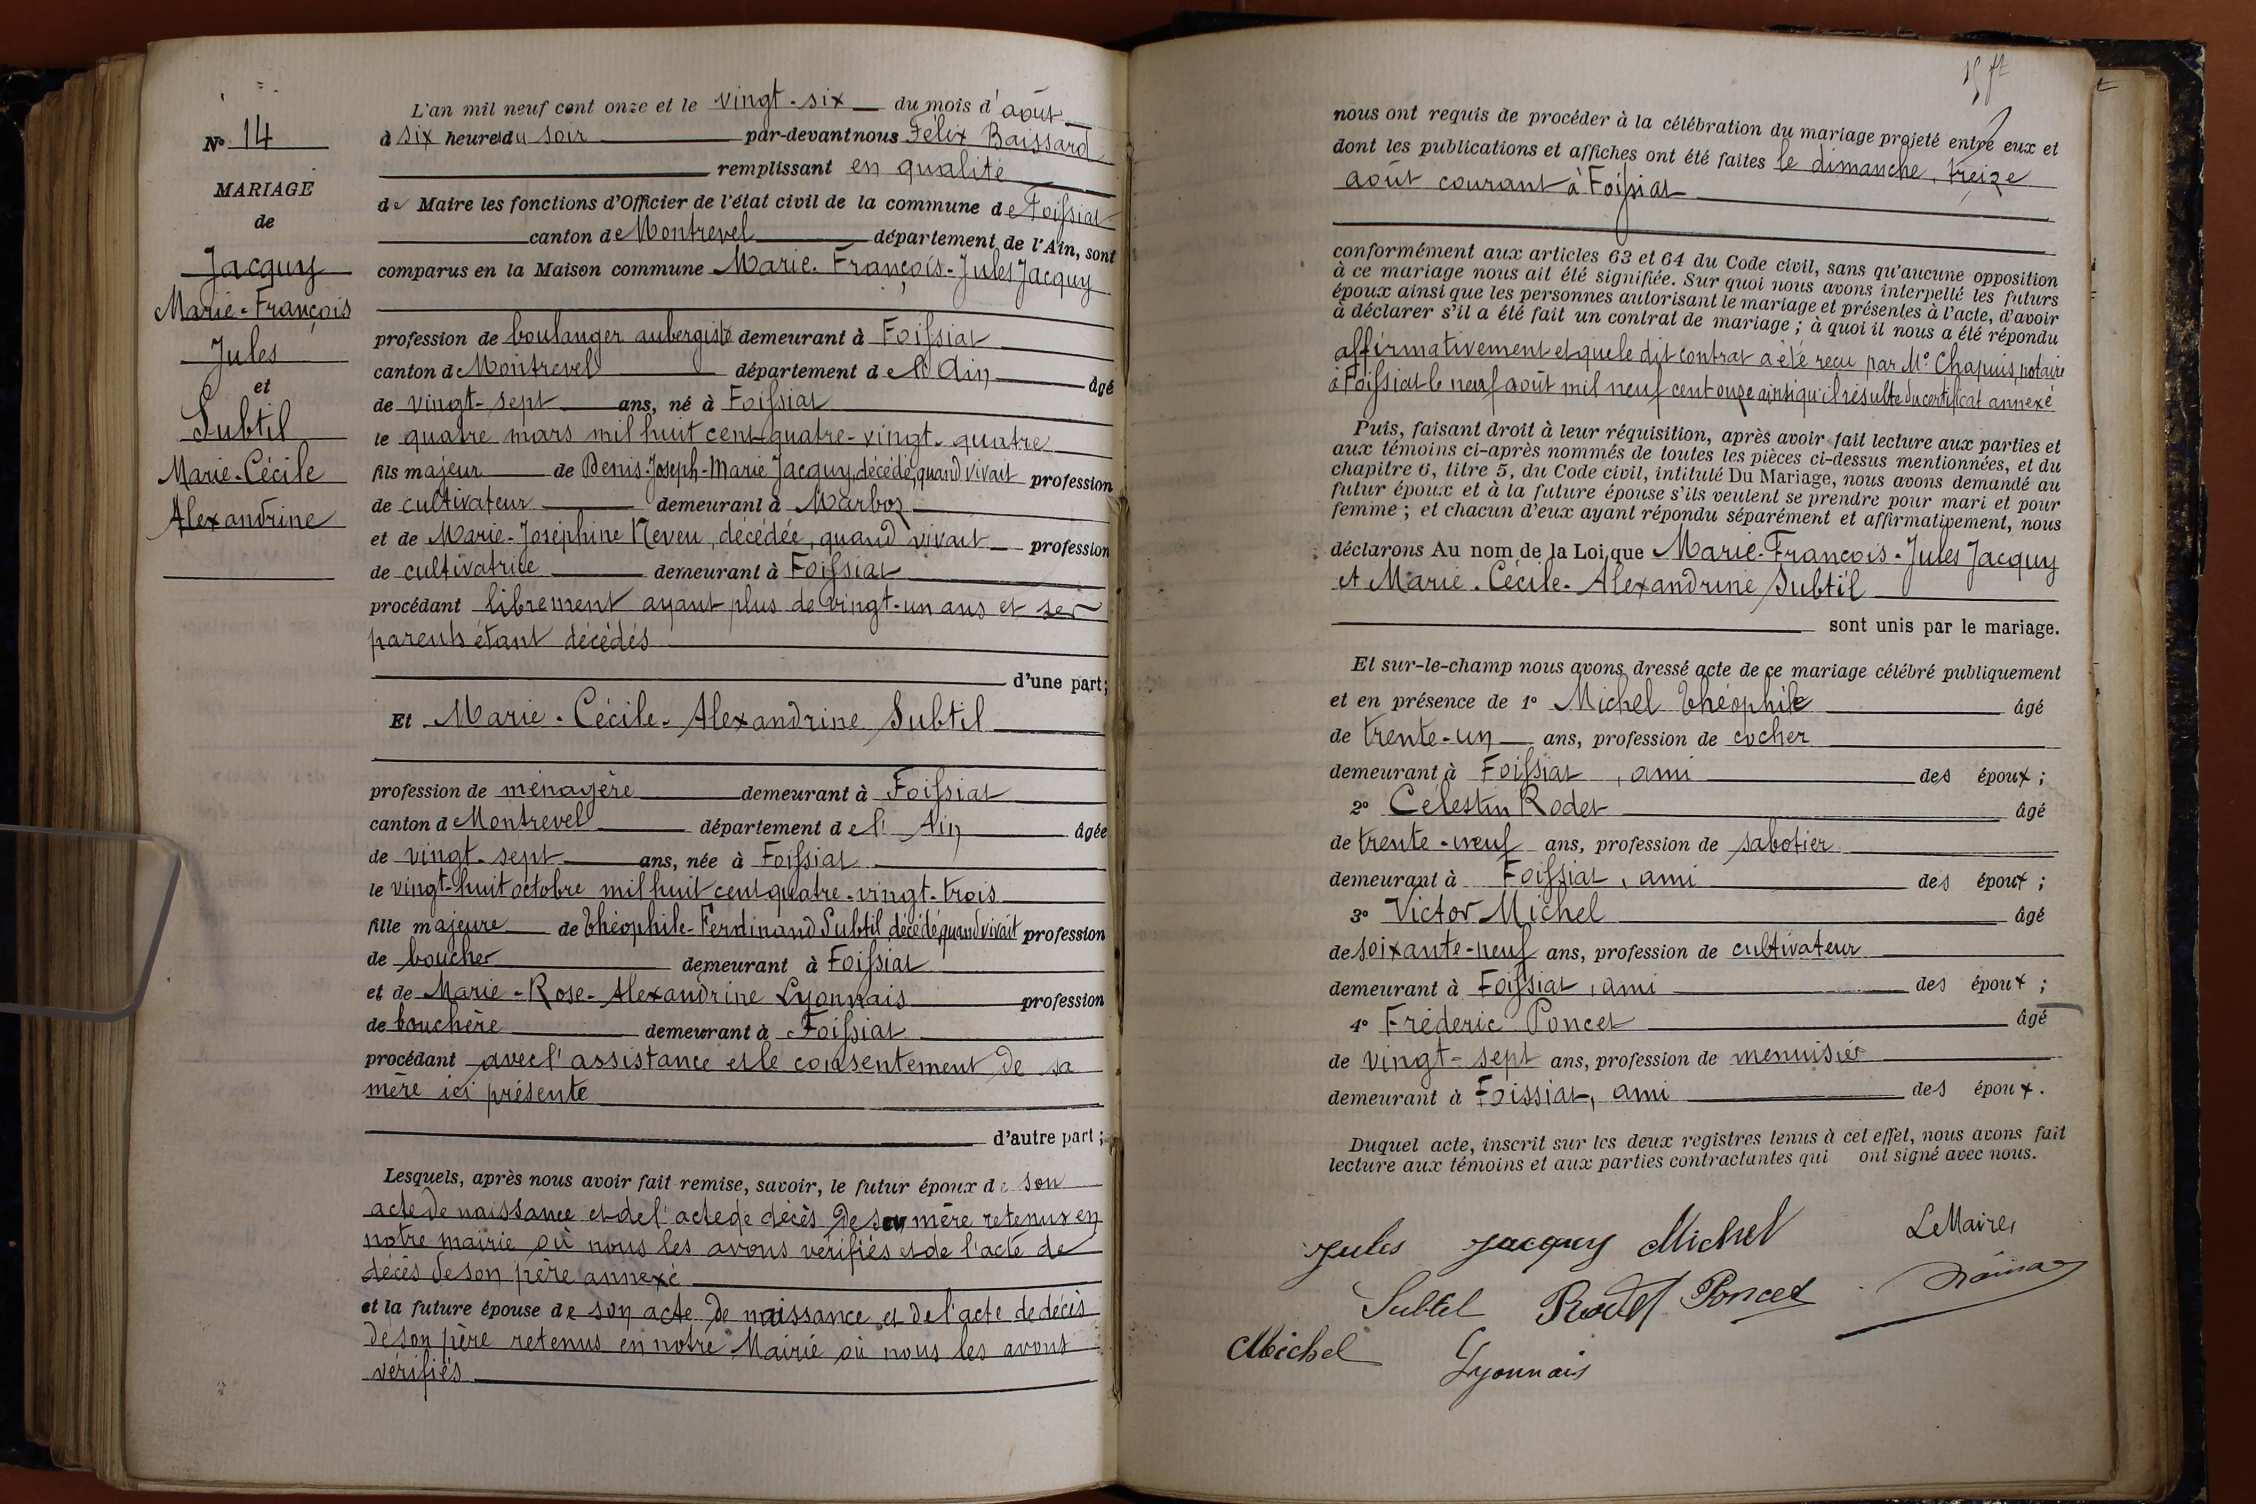 N° 14
MARIAGE
de
Jacquy
Marie-François
Jules
et
Subtil
Marie-Cécile
Alexandrine
L'an mil neuf cent onze et le vingt-six du mois d'août
à six heures du soir par-devant nous Félix Baissard
remplissant en qualité
de Maire les fonctions d'Officier de l'état civil de la commune de Foissiat
canton de Montrevel département de l'Ain, sont
comparus en la Maison commune Marie-François-Jules Jacquy
profession de boulanger aubergiste demeurant à Foissiat
canton de Montrevel département de l'Ain âgé
de vingt-sept ans, né à Foissiat
le quatre mars mil huit cent quatre-vingt-quatre
fils majeur de Denis-Joseph-Marie Jacquy, décédé, quand vivait profession
de cultivateur demeurant à Marboz
et de Marie-Joséphine Neveu, décédée, quand vivait profession
de cultivatrice demeurant à Foissiat
procédant librement ayant plus de vingt-un ans et ses
parents étant décédés
d'une part;
Et Marie-Cécile-Alexandrine Subtil
profession de ménagère demeurant à Foissiat
canton de Montrevel département de l'Ain âgée
de vingt-sept ans, née à Foissiat
le vingt-huit octobre mil huit cent quatre-vingt-trois
fille majeure de Théophile-Ferdinand Subtil, décédé, quand vivait profession
de boucher demeurant à Foissiat
et de Marie-Rose-Alexandrine Lyonnais profession
de bouchère demeurant à Foissiat
procédant avec l'assistance et le consentement de sa
mère ici présente
d'autre part;
Lesquels, après nous avoir fait remise, savoir, le futur époux de son
acte de naissance et de l'acte de décès de sa mère retenus en
notre mairie où nous les avons vérifiés et de l'acte de
décès de son père annexé
et la future épouse de son acte de naissance et de l'acte de décès
de son père retenus en notre Mairie où nous les avons
vérifiés
nous ont requis de procéder à la célébration du mariage projeté entre eux et
dont les publications et affiches ont été faites le dimanche, treize
août courant à Foissiat
conformément aux articles 63 et 64 du Code civil, sans qu'aucune opposition
à ce mariage nous ait été signifiée. Sur quoi nous avons interpellé les futurs
époux ainsi que les personnes autorisant le mariage et présentes à l'acte, d'avoir
à déclarer s'il a été fait un contrat de mariage; à quoi il nous a été répondu
affirmativement et que le dit contrat a été reçu par Me Chapuis, notaire
à Foissiat le neuf août mil neuf cent onze ainsi qu'il résulte du certificat annexé
Puis, faisant droit à leur réquisition, après avoir fait lecture aux parties et
aux témoins ci-après nommés de toutes les pièces ci-dessus mentionnées, et du
chapitre 6, titre 5, du Code civil, intitulé Du Mariage, nous avons demandé au
futur époux et à la future épouse s'ils veulent se prendre pour mari et pour
femme; et chacun d'eux ayant répondu séparément et affirmativement, nous
déclarons Au nom de la Loi, que Marie-François-Jules Jacquy
et Marie-Cécile-Alexandrine Subtil
sont unis par le mariage.
Et sur-le-champ nous avons dressé acte de ce mariage célébré publiquement
et en présence de 1° Michel Théophile âgé
de trente-un ans, profession de cocher
demeurant à Foissiat, ami des époux;
2° Célestin Rodet âgé
de trente-neuf ans, profession de sabotier
demeurant à Foissiat, ami des époux;
3° Victor Michel âgé
de soixante-neuf ans, profession de cultivateur
demeurant à Foissiat, ami des époux;
4° Fréderic Poncet âgé
de vingt-sept ans, profession de menuisier
demeurant à Foissiat, ami des époux.
Duquel acte, inscrit sur les deux registres tenus à cet effet, nous avons fait
lecture aux témoins et aux parties contractantes qui ont signé avec nous.
Jules Jacquy Michel Le Maire,
Subtil Rodet Poncet
Michel Lyonnais